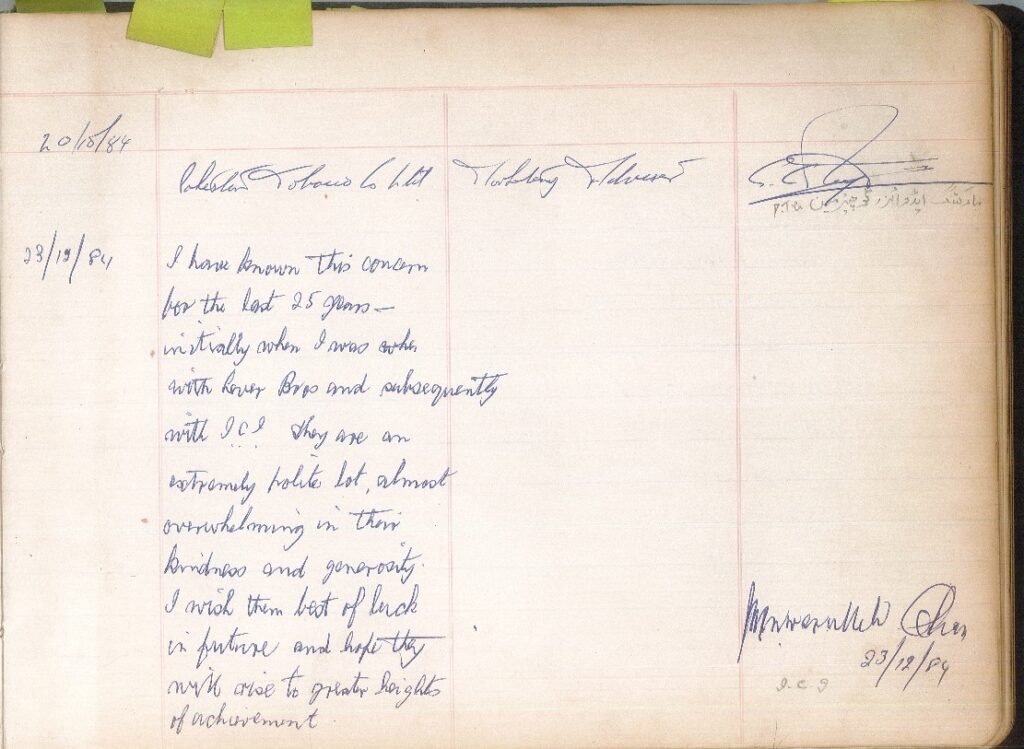 20/15/84
Pakistan Tobacco Co Ltd Marketing Adviser
مارکٹنگ ایڈوائزر P.T.C
23/12/84
I have known this concern
for the last 25 years —
initially when I was when
with Lever Bros and subsequently
with I C I they are an
extremely polite lot, almost
overwhelming in their
kindness and generosity.
I wish them best of luck
in future and hope they
will arise to greater heights
of achievement
Khan
23/12/84
I.C.I